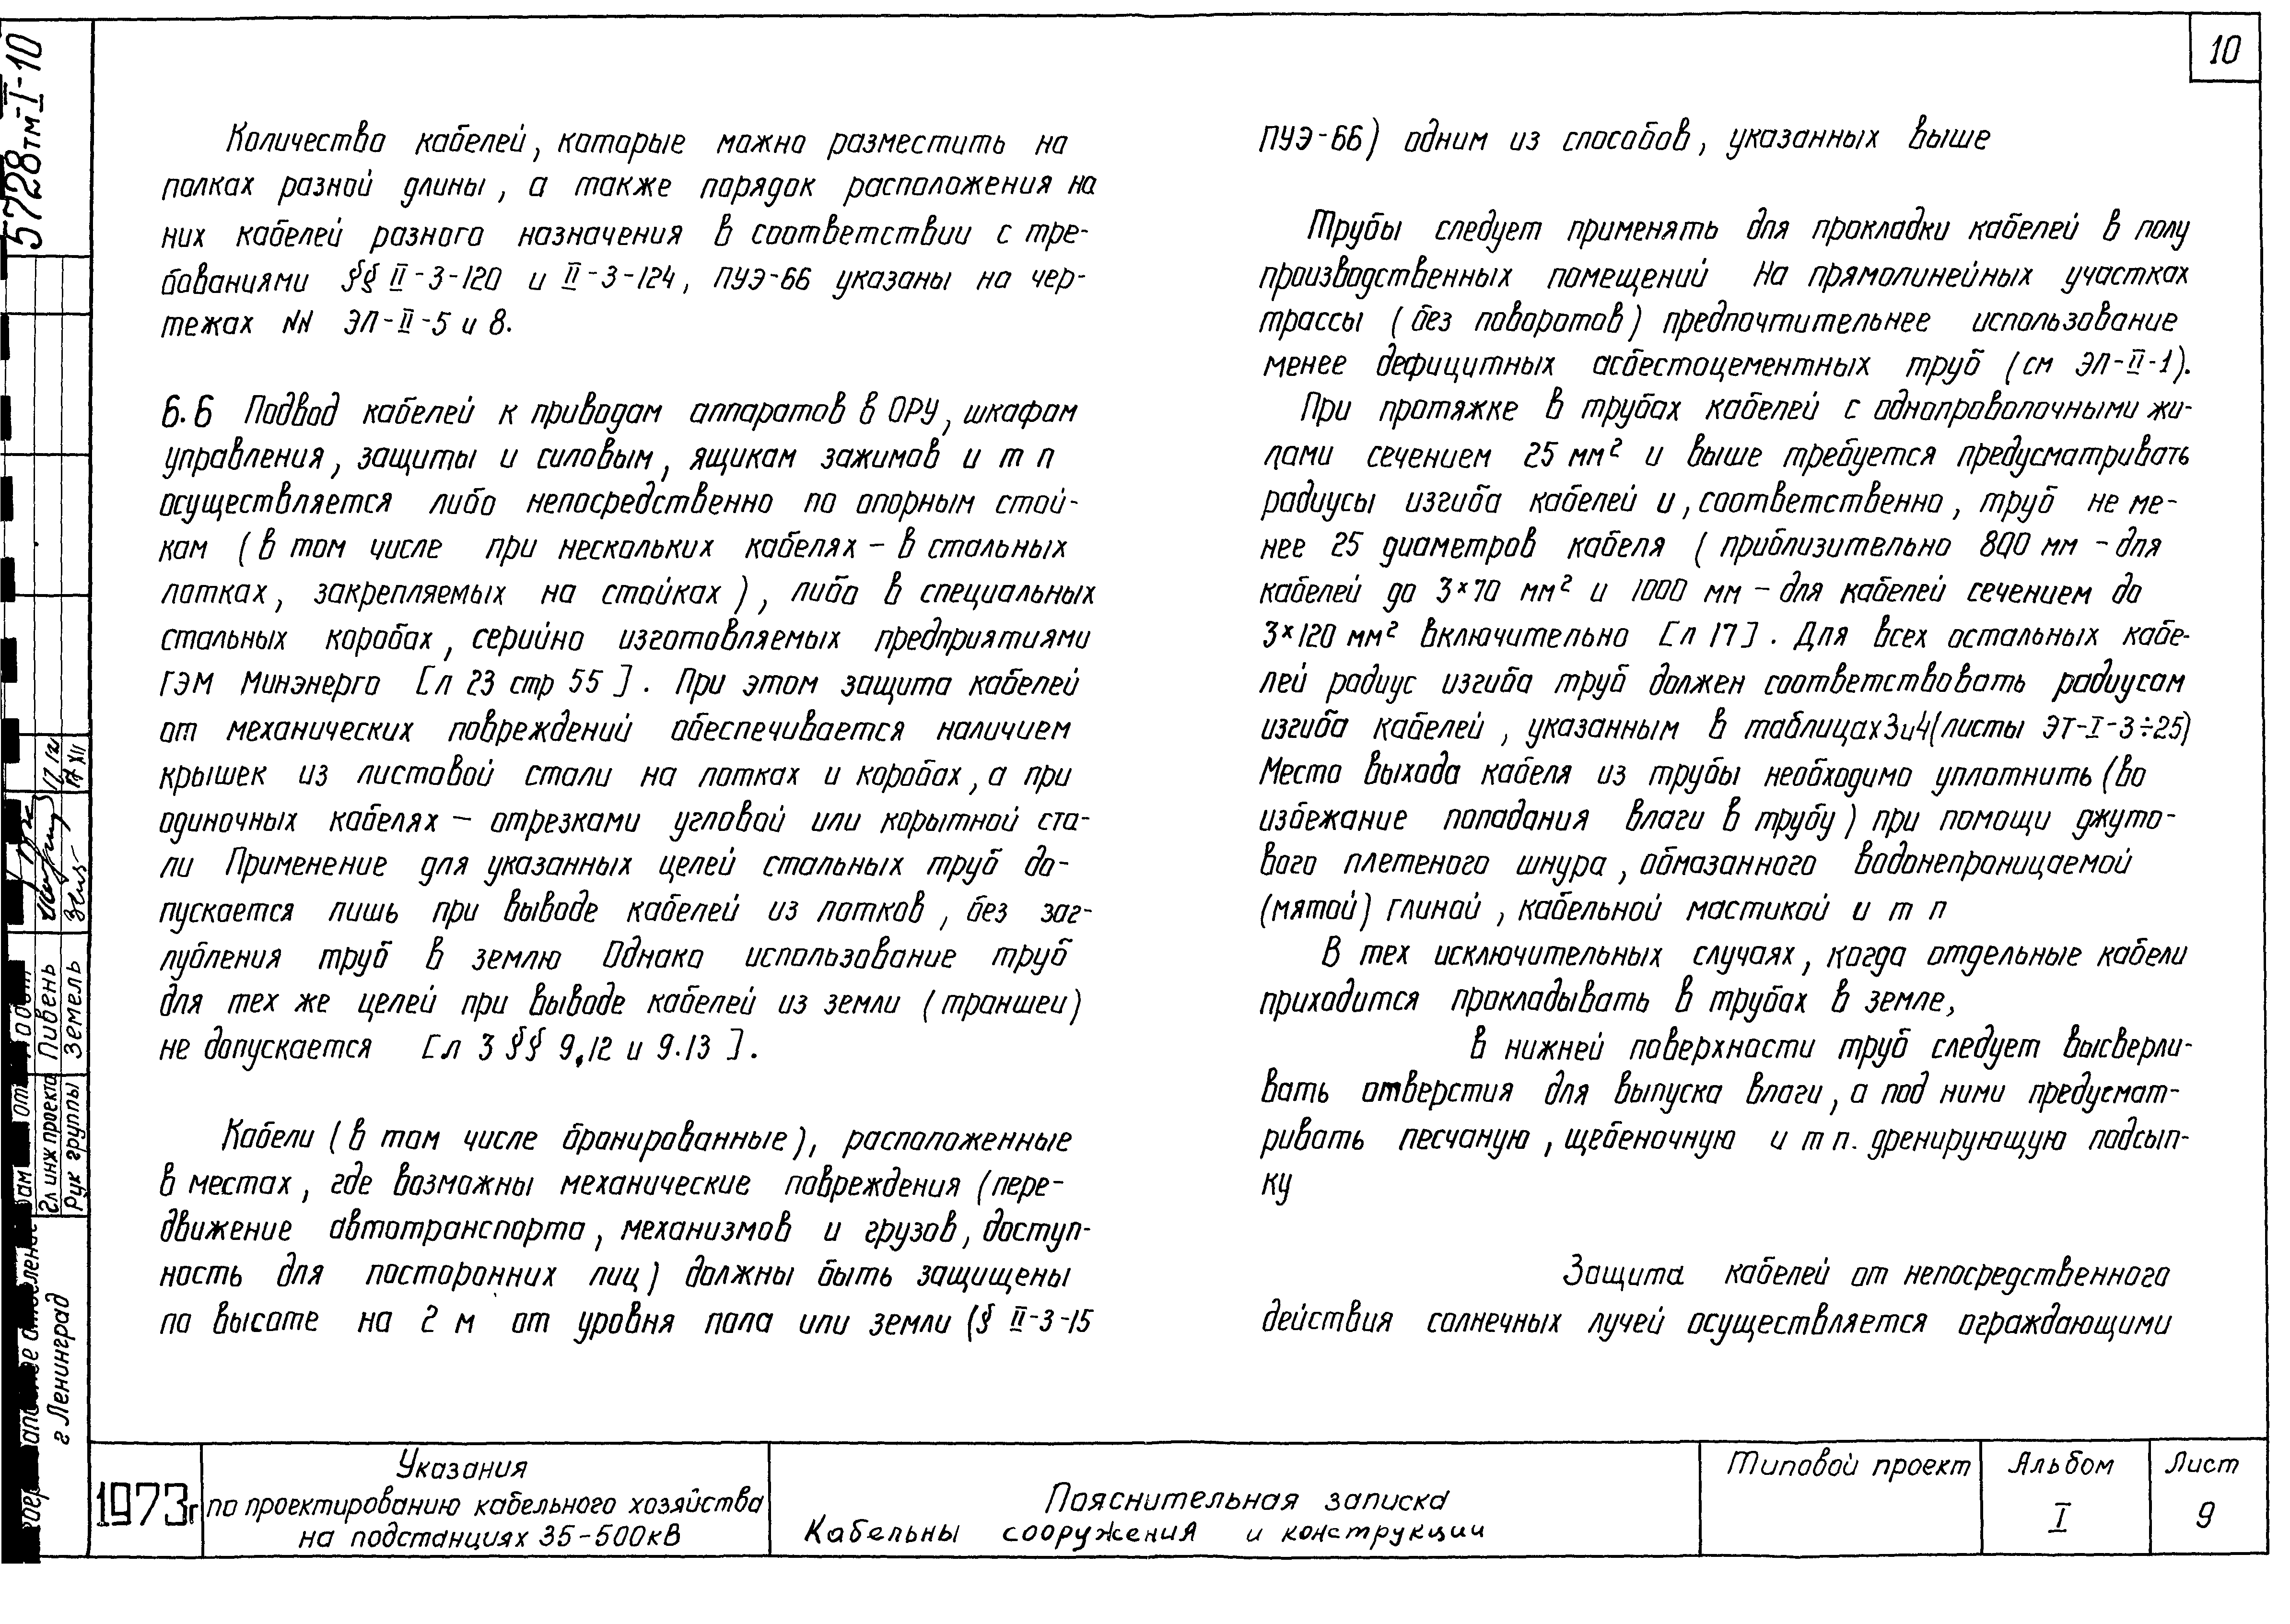 10
5728тм-I-10
Количество кабелей, которые можно разместить на
полках разной длины, а также порядок расположения на
них кабелей разного назначения в соответствии с тре-
бованиями §§ II-3-120 и II-3-124, ПУЭ-66 указаны на чер-
тежах NN ЭЛ-II-5 и 8.
6.6 Подвод кабелей к приводам аппаратов в ОРУ, шкафам
управления, защиты и силовым, ящикам зажимов и т п
осуществляется либо непосредственно по опорным стой-
кам (в том числе при нескольких кабелях - в стальных
лотках, закрепляемых на стойках), либо в специальных
стальных коробах, серийно изготовляемых предприятиями
ГЭМ Минэнерго [л 23 стр 55]. При этом защита кабелей
от механических повреждений обеспечивается наличием
крышек из листовой стали на лотках и коробах, а при
одиночных кабелях - отрезками угловой или корытной ста-
ли Применение для указанных целей стальных труб до-
пускается лишь при выводе кабелей из лотков, без заг-
лубления труб в землю Однако использование труб
для тех же целей при выводе кабелей из земли (траншеи)
не допускается [л 3 §§ 9.12 и 9.13].
Кабели (в том числе бронированные), расположенные
в местах, где возможны механические повреждения (пере-
движение автотранспорта, механизмов и грузов, доступ-
ность для посторонних лиц) должны быть защищены
по высоте на 2 м от уровня пола или земли (§ II-3-15
ПУЭ-66) одним из способов, указанных выше
Трубы следует применять для прокладки кабелей в полу
производственных помещений На прямолинейных участках
трассы (без поворотов) предпочтительнее использование
менее дефицитных асбестоцементных труб (см ЭЛ-II-1).
При протяжке в трубах кабелей с однопроволочными жи-
лами сечением 25 мм² и выше требуется предусматривать
радиусы изгиба кабелей и, соответственно, труб не ме-
нее 25 диаметров кабеля (приблизительно 800 мм - для
кабелей до 3×70 мм² и 1000 мм - для кабелей сечением до
3×120 мм² включительно [л 17]. Для всех остальных кабе-
лей радиус изгиба труб должен соответствовать радиусам
изгиба кабелей, указанным в таблицах 3 и 4 (листы ЭТ-I-3÷25)
Место выхода кабеля из трубы необходимо уплотнить (во
избежание попадания влаги в трубу) при помощи джуто-
вого плетеного шнура, обмазанного водонепроницаемой
(мятой) глиной, кабельной мастикой и т п
В тех исключительных случаях, когда отдельные кабели
приходится прокладывать в трубах в земле,
в нижней поверхности труб следует высверли-
вать отверстия для выпуска влаги, а под ними предусмат-
ривать песчаную, щебеночную и т п. дренирующую подсып-
ку
Защита кабелей от непосредственного
действия солнечных лучей осуществляется ограждающими
Гл инж проекта Пивень
Рук группы Земель 17 XII
г Ленинград
1973г
Указания
по проектированию кабельного хозяйства
на подстанциях 35-500кВ
Пояснительная записка
Кабельны сооружения и конструкции
Типовой проект
Альбом
I
Лист
9